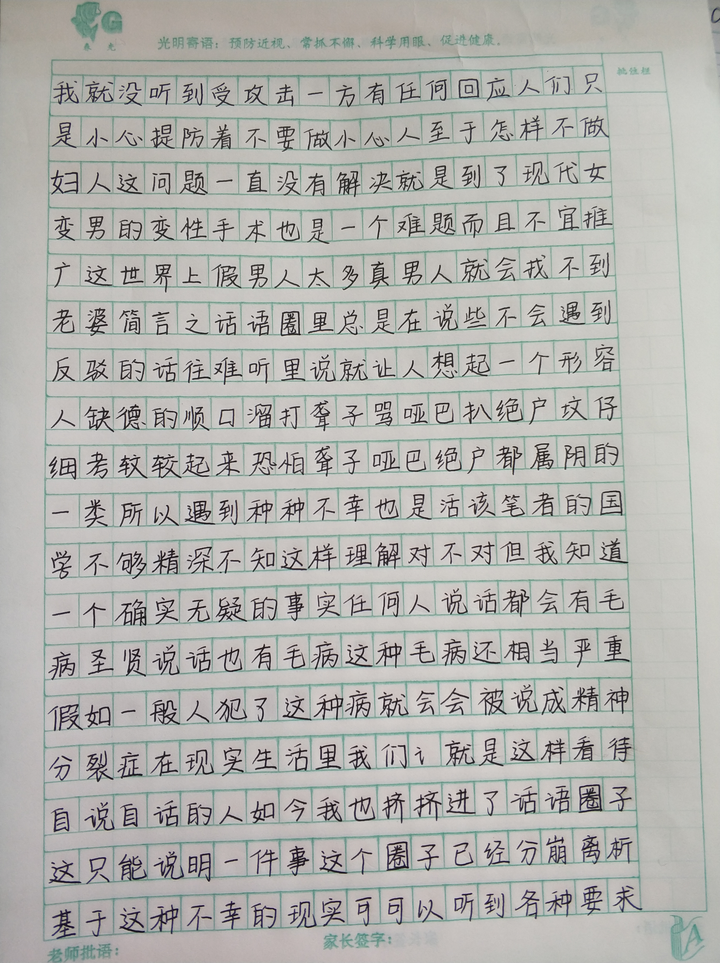 G
春光
光明寄语：预防近视、常抓不懈、科学用眼、促进健康。
批改栏
我就没听到受攻击一方有任何回应人们只
是小心提防着不要做小心人至于怎样不做
妇人这问题一直没有解决就是到了现代女
变男的变性手术也是一个难题而且不宜推
广这世界上假男人太多真男人就会找不到
老婆简言之话语圈里总是在说些不会遇到
反驳的话往难听里说就让人想起一个形容
人缺德的顺口溜打聋子骂哑巴扒绝户坟仔
细考较较起来恐怕聋子哑巴绝户都属阴的
一类所以遇到种种不幸也是活该笔者的国
学不够精深不知这样理解对不对但我知道
一个确实无疑的事实任何人说话都会有毛
病圣贤说话也有毛病这种毛病还相当严重
假如一般人犯了这种病就会会被说成精神
分裂症在现实生活里我们讠就是这样看待
自说自话的人如今我也挤挤进了话语圈子
这只能说明一件事这个圈子已经分崩离析
基于这种不幸的现实可可以听到各种要求
老师批语：
家长签字：
A